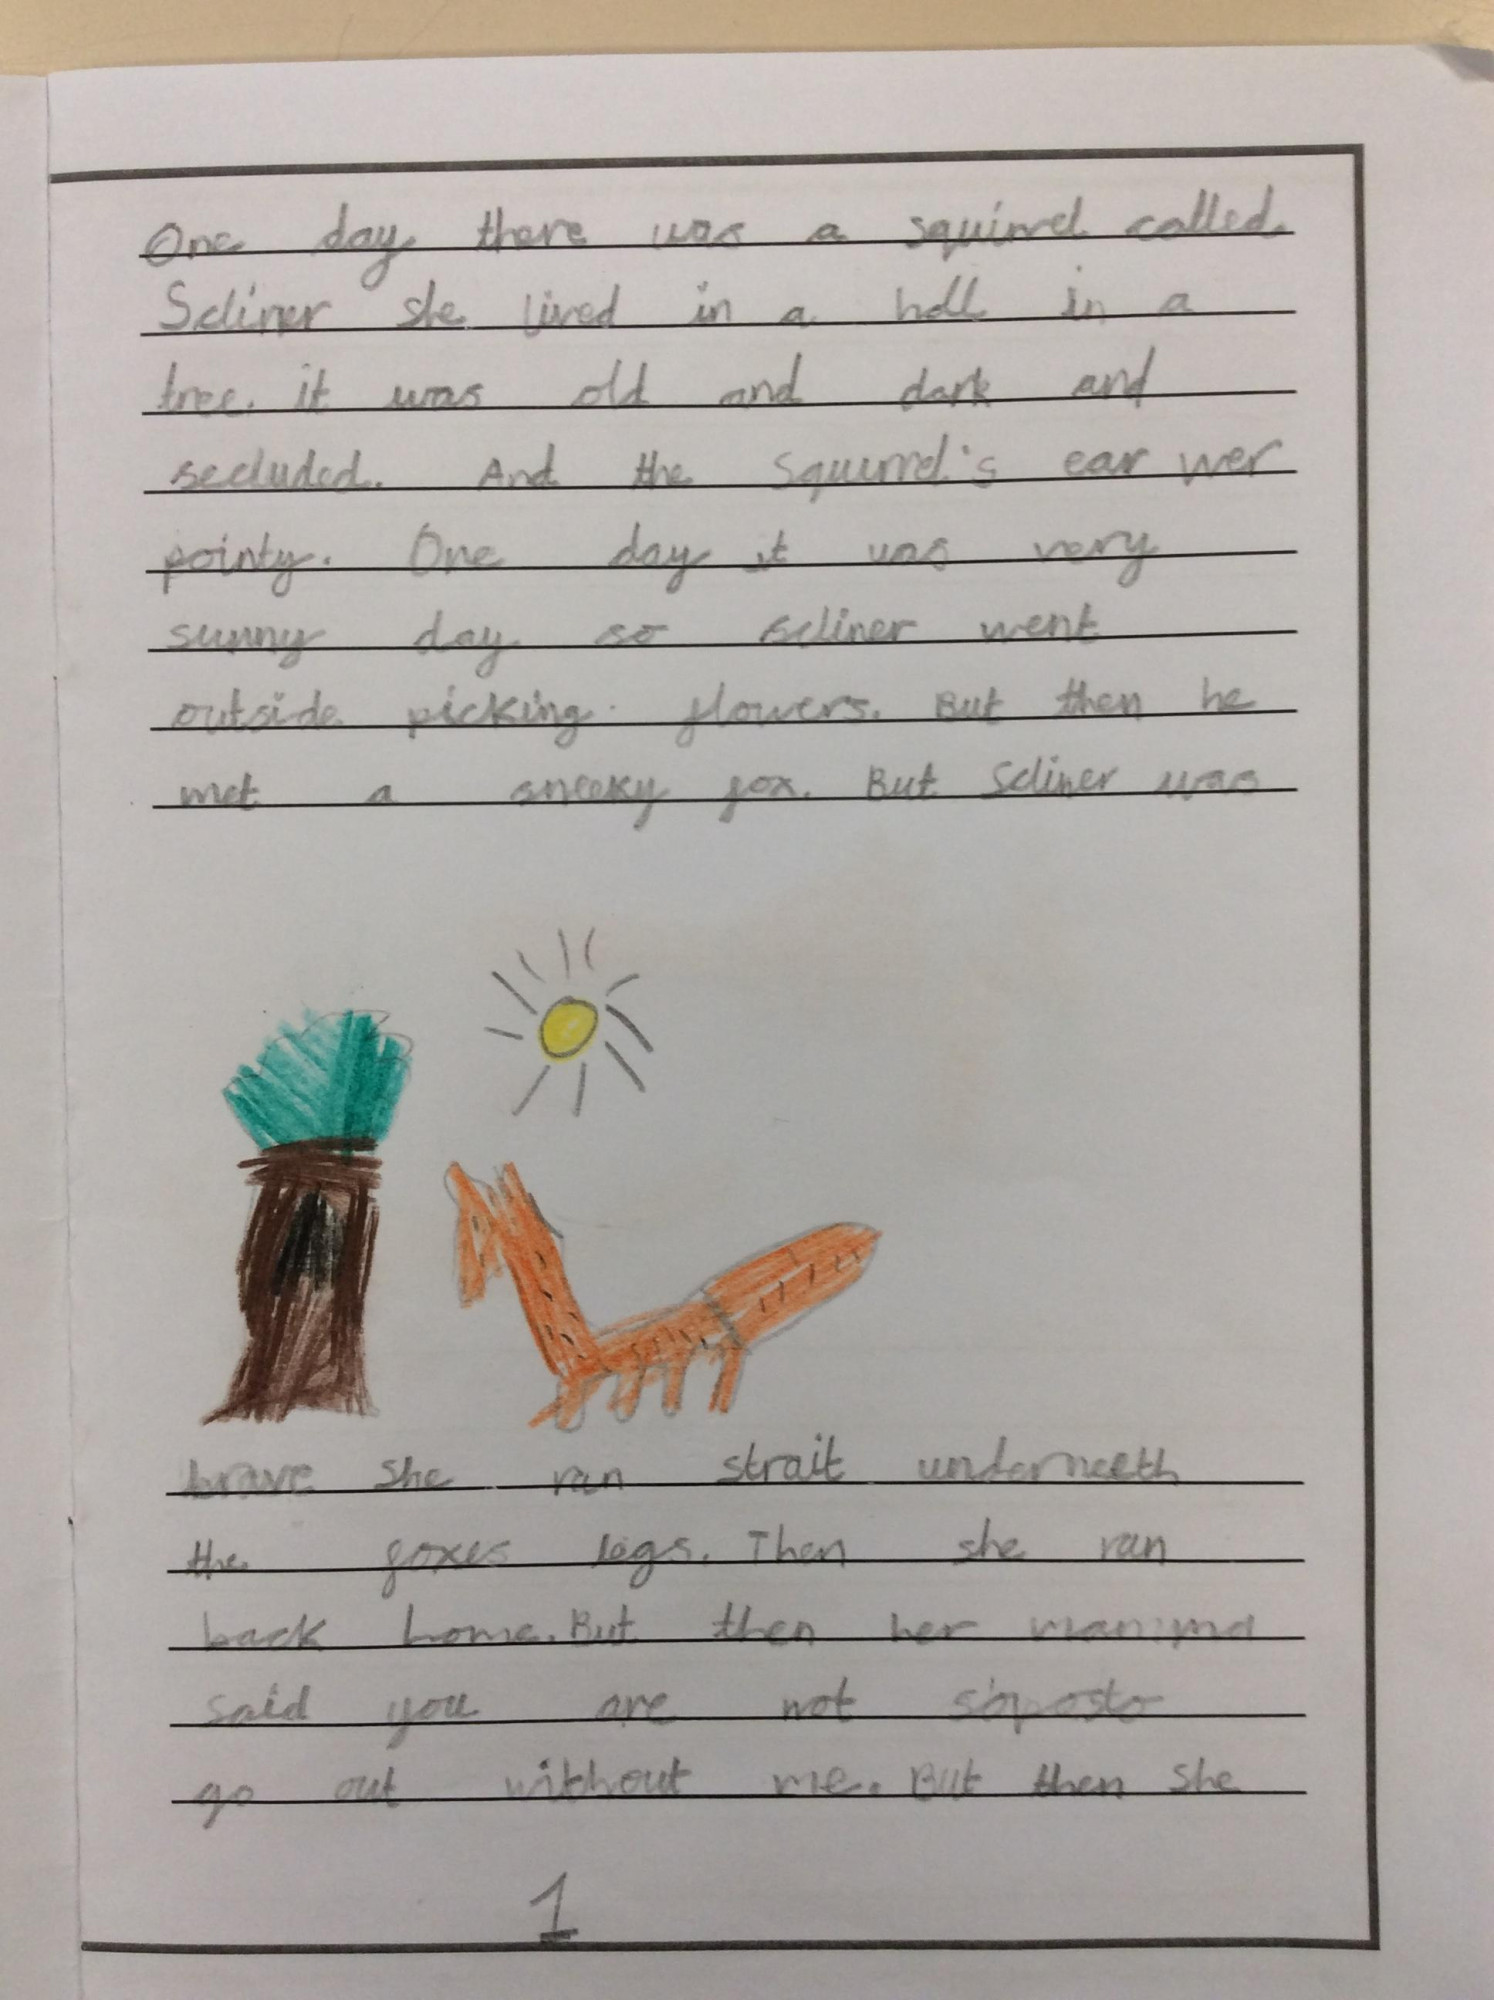 One day there was a squirrel called
Scliner she lived in a holl in a
tree. it was old and dark and
secluded. And the squirrel's ear wer
pointy. One day it was very
sunny day so scliner went
outside picking flowers. But then he
met a sneeky fox. But Scliner was
brave she ran strait underneeth
the foxes legs. Then she ran
back home. But then her mamma
said you are not soposto
go out without me. But then she
1